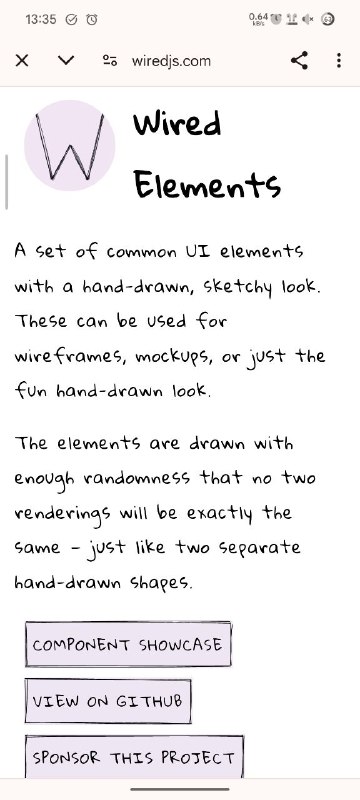 13:35
0.64
kB/s
wiredjs.com
W
Wired
Elements
A set of common UI elements
with a hand-drawn, sketchy look.
These can be used for
wireframes, mockups, or just the
fun hand-drawn look.
The elements are drawn with
enough randomness that no two
renderings will be exactly the
same – just like two separate
hand-drawn shapes.
COMPONENT SHOWCASE
VIEW ON GITHUB
SPONSOR THIS PROJECT